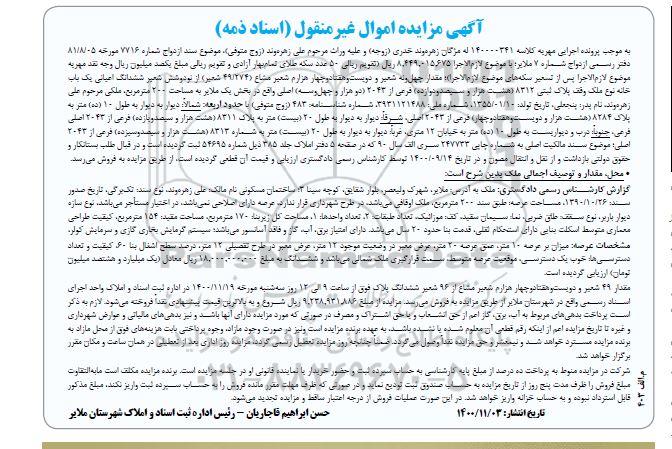 آگهی مزایده اموال غیرمنقول (اسناد ذمه)
به موجب پرونده اجرایی مهریه کلاسه ۱۴۰۰۰۰۳۴۱ له مژگان زهره‌وند خدری (زوجه) و علیه وراث مرحوم علی زهره‌وند (زوج متوفی)، موضوع سند ازدواج شماره ۷۷۱۶ مورخه ۸۱/۸/۰۵
دفتر رسمی ازدواج شماره ۷ ملایر؛ با موضوع لازم‌الاجرا ۸,۴۴۹,۰۱۵۶۷۵ ریال (تقویم ریالی ۵۰ عدد سکه طلای تمام‌بهار آزادی و تقویم ریالی مبلغ یکصد میلیون ریال وجه نقد مهریه
موضوع لازم‌الاجرا پس از تسعیر سکه‌های موضوع لازم‌الاجرا)؛ مقدار چهل‌ونه شعیر و دویست‌وهفتادوچهار هزارم شعیر مشاع (۴۹/۲۷۴ شعیر) از نودوشش شعیر ششدانگ اعیانی یک باب
خانه نوع ملک وقف پلاک ثبتی ۸۳۱۲ (هشت هزار و سیصدودوازده) فرعی از ۲۰۴۳ (دو هزار و چهل‌وسه) اصلی واقع در بخش یک ملایر به مساحت ۲۰۰ مترمربع، ملکی مرحوم علی
زهره‌وند، نام پدر: پنجعلی، تاریخ تولد: ۱۳۵۵/۰۱/۱۰، شماره ملی: ۳۹۳۱۱۲۱۴۸۸، شماره شناسنامه: ۴۸۳ (زوج متوفی) با حدود اربعه: شمالاً: دیوار به دیوار به طول ۱۰ (ده) متر به
پلاک ۸۲۸۴ (هشت هزار و دویست‌وهشتادوچهار) فرعی از ۲۰۴۳ اصلی، شرقاً: دیوار به دیوار به طول ۲۰ (بیست) متر به پلاک ۸۳۱۱ (هشت هزار و سیصدویازده) فرعی از ۲۰۴۳ اصلی
فرعی، جنوباً: درب و دیواریست به طول ۱۰ (ده) متر به خیابان ۱۲ متری، غرباً: دیوار به دیوار به طول ۲۰ (بیست) متر به شماره ۸۳۱۳ (هشت هزار و سیصدوسیزده) فرعی از ۲۰۴۳
اصلی؛ موضوع سند مالکیت اصلی به شماره چاپی ۲۴۷۷۳۳ سری الف سال ۹۰ که در صفحه ۵ دفتر املاک جلد ۳۸۵ ذیل شماره ۵۴۶۹۵ ثبت گردیده است و در قبال طلب بستانکار و
حقوق دولتی بازداشت و از نقل و انتقال مصون و در تاریخ ۱۴۰۰/۰۹/۱۴ توسط کارشناس رسمی دادگستری ارزیابی و قیمت آن قطعی گردیده است، از طریق مزایده به فروش می‌رسد.
• محل، مقدار و توصیف اجمالی ملک بدین شرح است:
گزارش کارشناس رسمی دادگستری: ملک به آدرس: ملایر، شهرک ولیعصر، بلوار شقایق، کوچه سینا ۳؛ ساختمان مسکونی نام مالک: علی زهره‌وند، نوع سند: تک‌برگی، تاریخ صدور
سند: ۱۳۹۰/۱۰/۲۶، مساحت عرصه: طبق سند ۲۰۰ مترمربع، ملک اوقافی می‌باشد، در طرح شهرسازی قرار ندارد، عرصه دارای اصلاحی نمی‌باشد، در اختیار مستأجر می‌باشد، نوع سازه
دیوار باربر، نوع سقف: طاق ضربی، نما: سیمان سفید، کف: موزائیک، تعداد طبقات: ۲، تعداد واحدها: ۱، مساحت کل زیربنا: ۱۷۰ مترمربع، مساحت مفید: ۱۵۴ مترمربع، کیفیت طراحی
معماری متوسط اسکلت بنایی دارای استحکام ثقلی، قدمت بنا حدود ۲۰ سال می‌باشد. دارای امتیاز برق، آب، گاز و فاقد آسانسور می‌باشد؛ سیستم گرمایش بخاری گازی و سرمایش کولر،
مشخصات عرصه: میزان بر عرصه ۱۰ متر، عمق عرصه ۲۰ متر، عرض معبر در وضعیت موجود ۱۲ متر، عرض معبر در طرح تفصیلی ۱۲ متر، درصد سطح اشغال بنا ۶۰، کیفیت و تعداد
دسترسی‌ها: خوب یک دسترسی، موقعیت عرصه متوسط، سمت قرارگیری ملک شمالی می‌باشد و ششدانگ به مبلغ ۱۸,۰۰۰,۰۰۰,۰۰۰ ریال معادل (یک میلیارد و هشتصد میلیون
تومان) ارزیابی گردیده است.
مقدار ۴۹ شعیر و دویست‌وهفتادوچهار هزارم شعیر مشاع از ۹۶ شعیر ششدانگ پلاک فوق از ساعت ۹ الی ۱۲ روز سه‌شنبه مورخه ۱۴۰۰/۱۱/۱۹ در اداره ثبت اسناد و املاک واحد اجرای
اسناد رسمی واقع در شهرستان ملایر از طریق مزایده به فروش می‌رسد. مزایده از مبلغ ۹,۲۳۸,۹۳۱,۸۱۶ ریال شروع و به بالاترین قیمت پیشنهادی نقداً فروخته می‌شود. لازم به ذکر
است پرداخت بدهی‌های مربوط به آب، برق، گاز اعم از حق انشعاب و یا حق اشتراک و مصرف در صورتی که مورد مزایده دارای آنها باشد و نیز بدهی‌های مالیاتی و عوارض شهرداری
و غیره تا تاریخ مزایده اعم از اینکه رقم قطعی آن معلوم شده یا نشده باشد، به عهده برنده مزایده است ونیز در صورت وجود مازاد، وجوه پرداختی بابت هزینه‌های فوق از محل مازاد به
برنده مزایده مسترد خواهد شد و نیم‌عشر و حق مزایده نقداً وصول می‌گردد. ضمناً چنانچه روز مزایده تعطیل رسمی گردد، مزایده روز اداری بعد از تعطیلی در همان ساعت و مکان مقرر
برگزار خواهد شد.
شرکت در مزایده منوط به پرداخت ده درصد از مبلغ پایه کارشناسی به حساب سپرده ثبت و حضور خریدار یا نماینده قانونی او در جلسه مزایده است. برنده مزایده مکلف است مابه‌التفاوت
مبلغ فروش را ظرف مدت پنج روز از تاریخ مزایده به حساب صندوق ثبت تودیع نماید و در صورتی که ظرف مهلت مقرر مانده فروش را به حساب سپرده ثبت واریز نکند، مبلغ مذکور
قابل استرداد نبوده و به حساب خزانه واریز خواهد شد. در این صورت عملیات فروش از درجه اعتبار ساقط و مزایده تجدید می‌شود.
تاریخ انتشار: ۱۴۰۰/۱۱/۰۳
حسن ابراهیم قاجاریان – رئیس اداره ثبت اسناد و املاک شهرستان ملایر
م.الف ۴۰۳